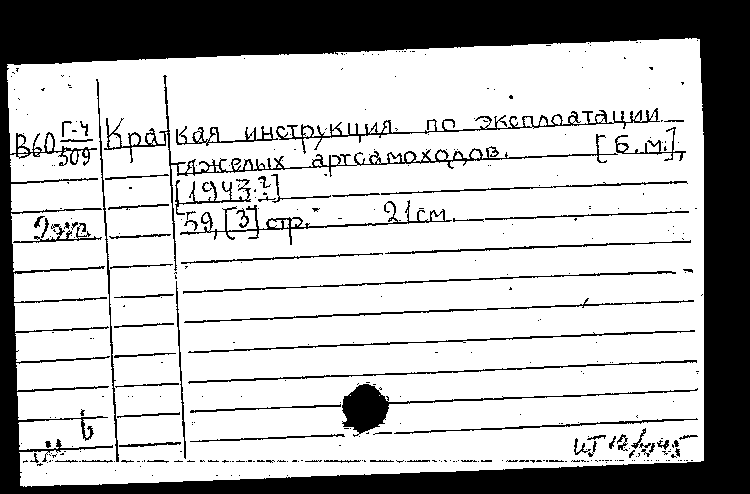 В60 Г-4/509 Краткая инструкция по эксплоатации
тяжелых артсамоходов. [Б.м.],
[1943?]
2экз. 59,[3] стр. 21см.